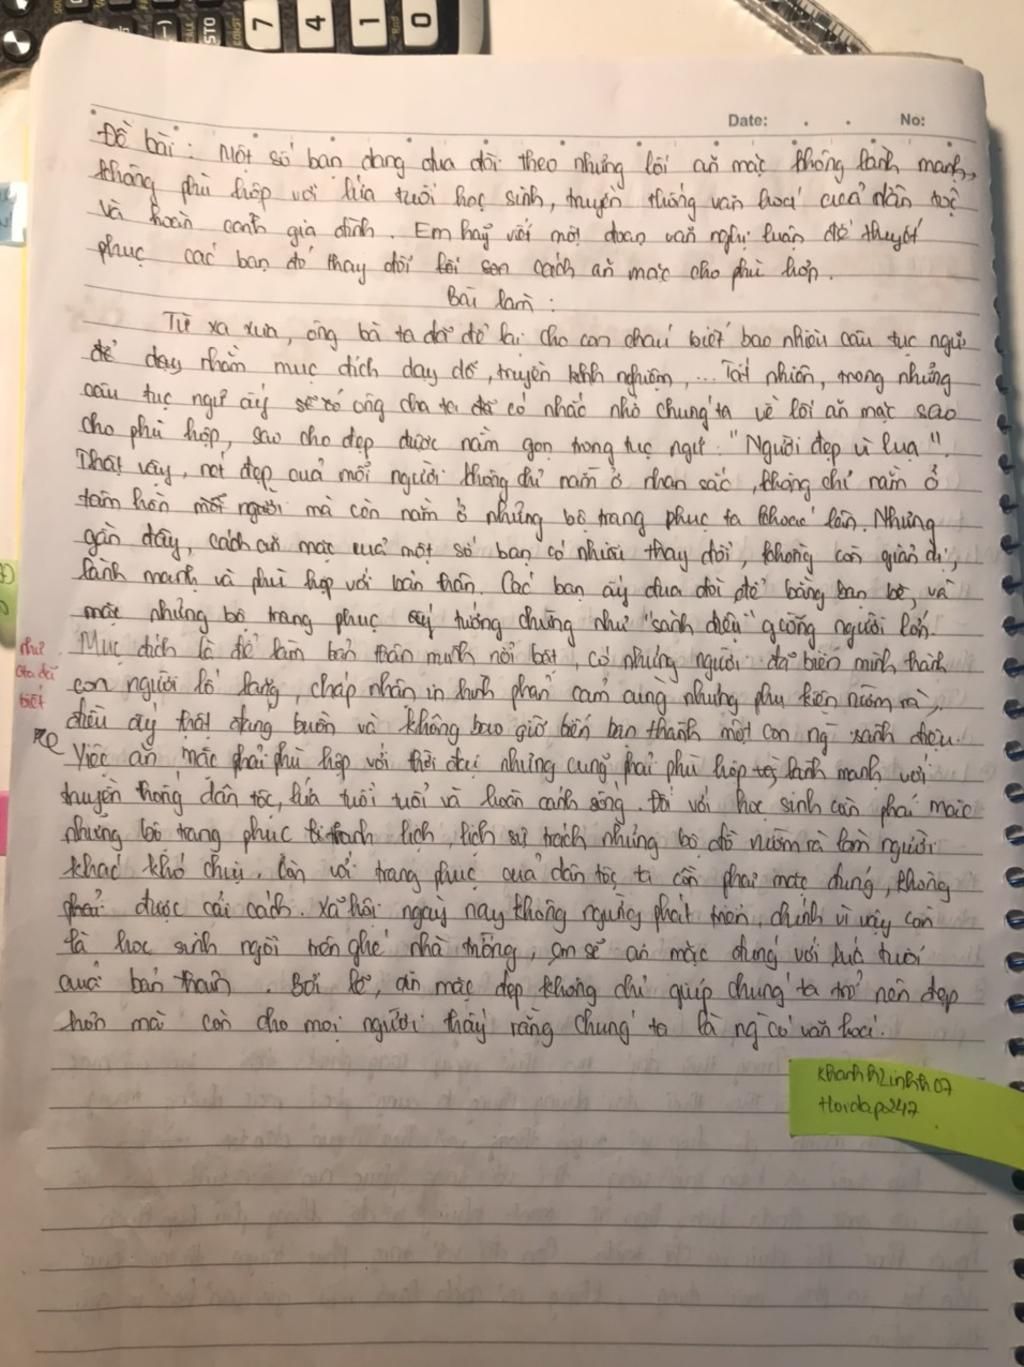 7 4 1 0
STO
Date: . . No:
Đề bài : Một số bạn đang đua đòi theo những lối ăn mặc không lành mạnh,
không phù hợp với lứa tuổi học sinh, truyền thống văn hoá của dân tộc
và hoàn cảnh gia đình . Em hãy viết một đoạn văn nghị luận để thuyết
phục các bạn đó thay đổi lối cách ăn mặc cho phù hợp .
Bài làm :
Từ xa xưa, ông bà ta đã để lại cho con cháu biết bao nhiêu câu tục ngữ
để dạy nhằm mục đích dạy dỗ, truyền kinh nghiệm, ... Tất nhiên, trong những
câu tục ngữ ấy sẽ có ông cha ta đã có nhắc nhở chúng ta về lối ăn mặc sao
cho phù hợp, sao cho đẹp được nằm gọn trong tục ngữ "Người đẹp vì lụa".
Thật vậy, nét đẹp của mỗi người không chỉ nằm ở nhan sắc, không chỉ nằm ở
tâm hồn mỗi người mà còn nằm ở những bộ trang phục ta khoác lên. Nhưng
gần đây, cách ăn mặc của một số bạn có nhiều thay đổi, không còn giản dị,
lành mạnh và phù hợp với bản thân. Các bạn ấy đua đòi để bằng bạn bè, và
mặc những bộ trang phục ấy tưởng chừng như "sành điệu" giống người lớn.
Mục đích là để làm bản thân mình nổi bật, có những người đã biến mình thành
như
ta đã
biết
con người lố lăng, chấp nhận in hình phản cảm cùng những phụ kiện rườm rà,
điều ấy thật đáng buồn và không bao giờ biến bạn thành một con ng sành điệu.
Việc ăn mặc phải phù hợp với thời đại nhưng cũng phải phù hợp lành mạnh với
truyền thống dân tộc, lứa tuổi tuổi và hoàn cảnh sống. Đối với học sinh cần phải mặc
những bộ trang phục thanh lịch, lịch sự tránh những bộ đồ rườm rà làm người
khác khó chịu. Còn với trang phục của dân tộc ta cần phải mặc đúng, không
phải được cải cách. Xã hội ngày nay không ngừng phát triển, chính vì vậy còn
là học sinh ngồi trên ghế nhà trường, em sẽ ăn mặc đúng với lứa tuổi
của bản thân . Bởi lẽ, ăn mặc đẹp không chỉ giúp chúng ta trở nên đẹp
hơn mà còn cho mọi người thấy rằng chúng ta là ng có văn hoá.
KhanhhLinhh07
Hoidap247